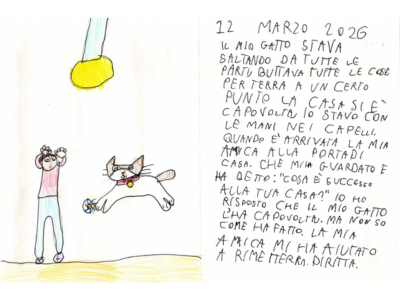 12 MARZO 2026
IL MIO GATTO STAVA
SALTANDO DA TUTTE LE
PARTI BUTTAVA TUTTE LE COSE
PER TERRA A UN CERTO
PUNTO LA CASA SI È
CAPOVOLTA IO STAVO CON
LE MANI NEI CAPELLI.
QUANDO È ARRIVATA LA MIA
AMICA ALLA PORTA DI
CASA. CHE MIA GUARDATO E
HA DETTO: "COSA È SUCCESSO
ALLA TUA CASA?" IO HO
RISPOSTO CHE IL MIO GATTO
L'HA CAPOVOLTA. MA NON SO
COME HA FATTO. LA MIA
AMICA MI HA AIUTATO
A RIMETTERLA DIRITTA.